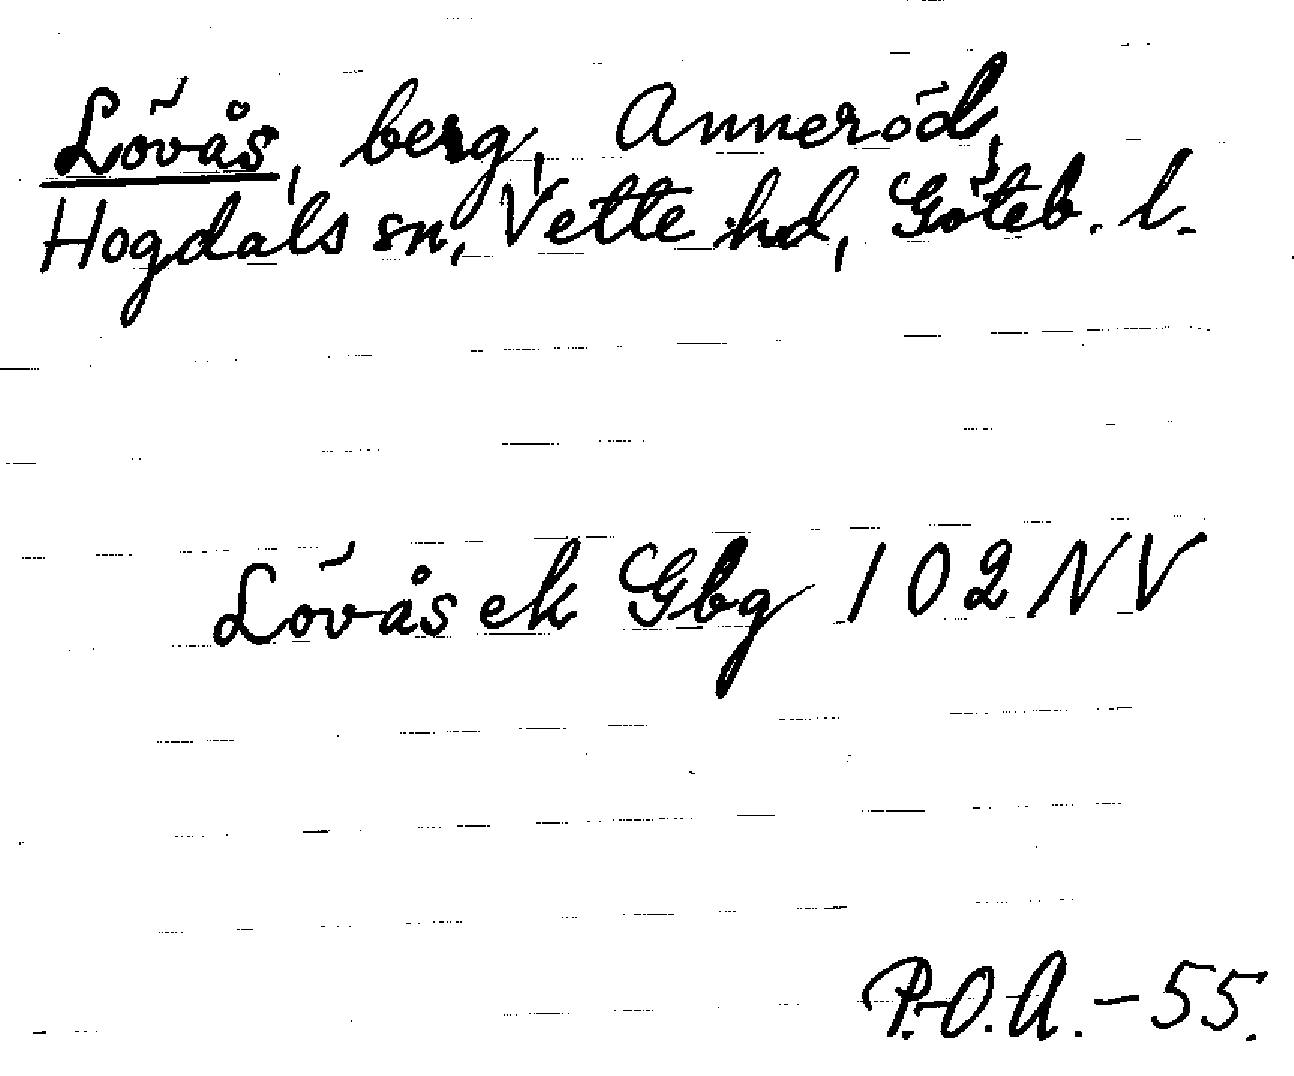 Lövås, berg, Anneröd,
Hogdals sn, Vette hd, Göteb. l.
Lövås ek Gbg 102 NV
P.-O. A. - 55.